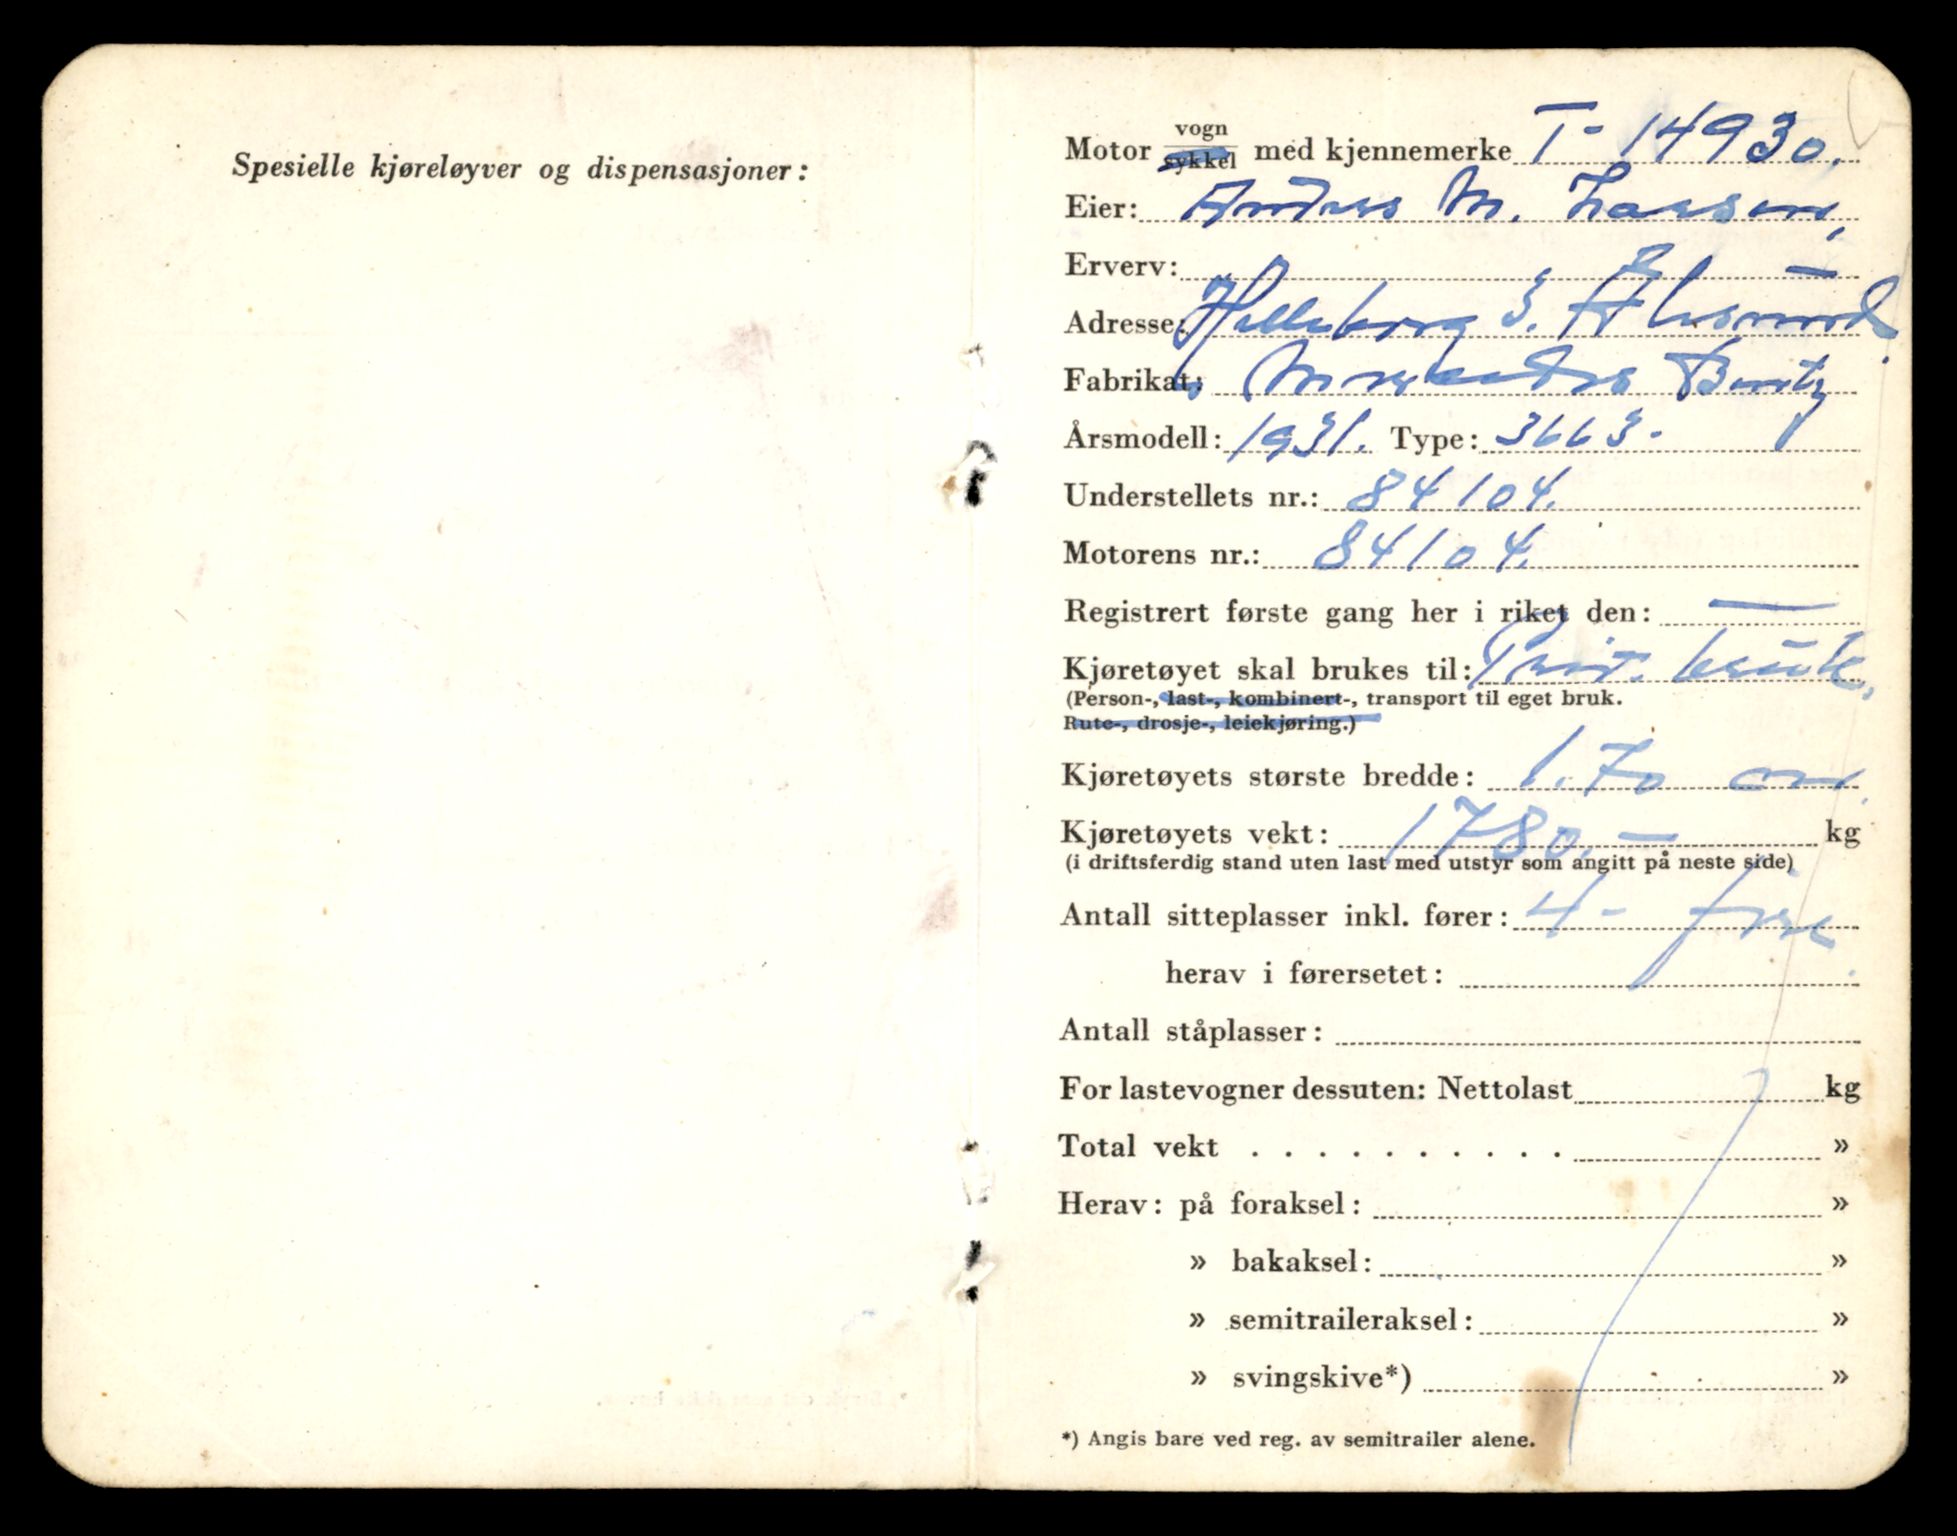 Spesielle kjøreløyver og dispensasjoner:
Motor vogn sykkel med kjennemerke T- 14930.
Eier: Anders M. Larsen,
Erverv: —
Adresse: 3. Ålesund.
Fabrikat: Mercedes Bentz
Årsmodell: 1931. Type: 3663.
Understellets nr.: 84104.
Motorens nr.: 84104.
Registrert første gang her i riket den: —
Kjøretøyet skal brukes til: Priv. bruk.
(Person-, last-, kombinert-, transport til eget bruk.
Rute-, drosje-, leiekjøring.)
Kjøretøyets største bredde: 1.70 cm.
Kjøretøyets vekt: 1780.— kg
(i driftsferdig stand uten last med utstyr som angitt på neste side)
Antall sitteplasser inkl. fører: 4- fire.
herav i førersetet:
Antall ståplasser:
For lastevogner dessuten: Nettolast kg
Total vekt . . . . . . . . . . »
Herav: på foraksel: »
» bakaksel: »
» semitraileraksel: »
» svingskive*) »
*) Angis bare ved reg. av semitrailer alene.